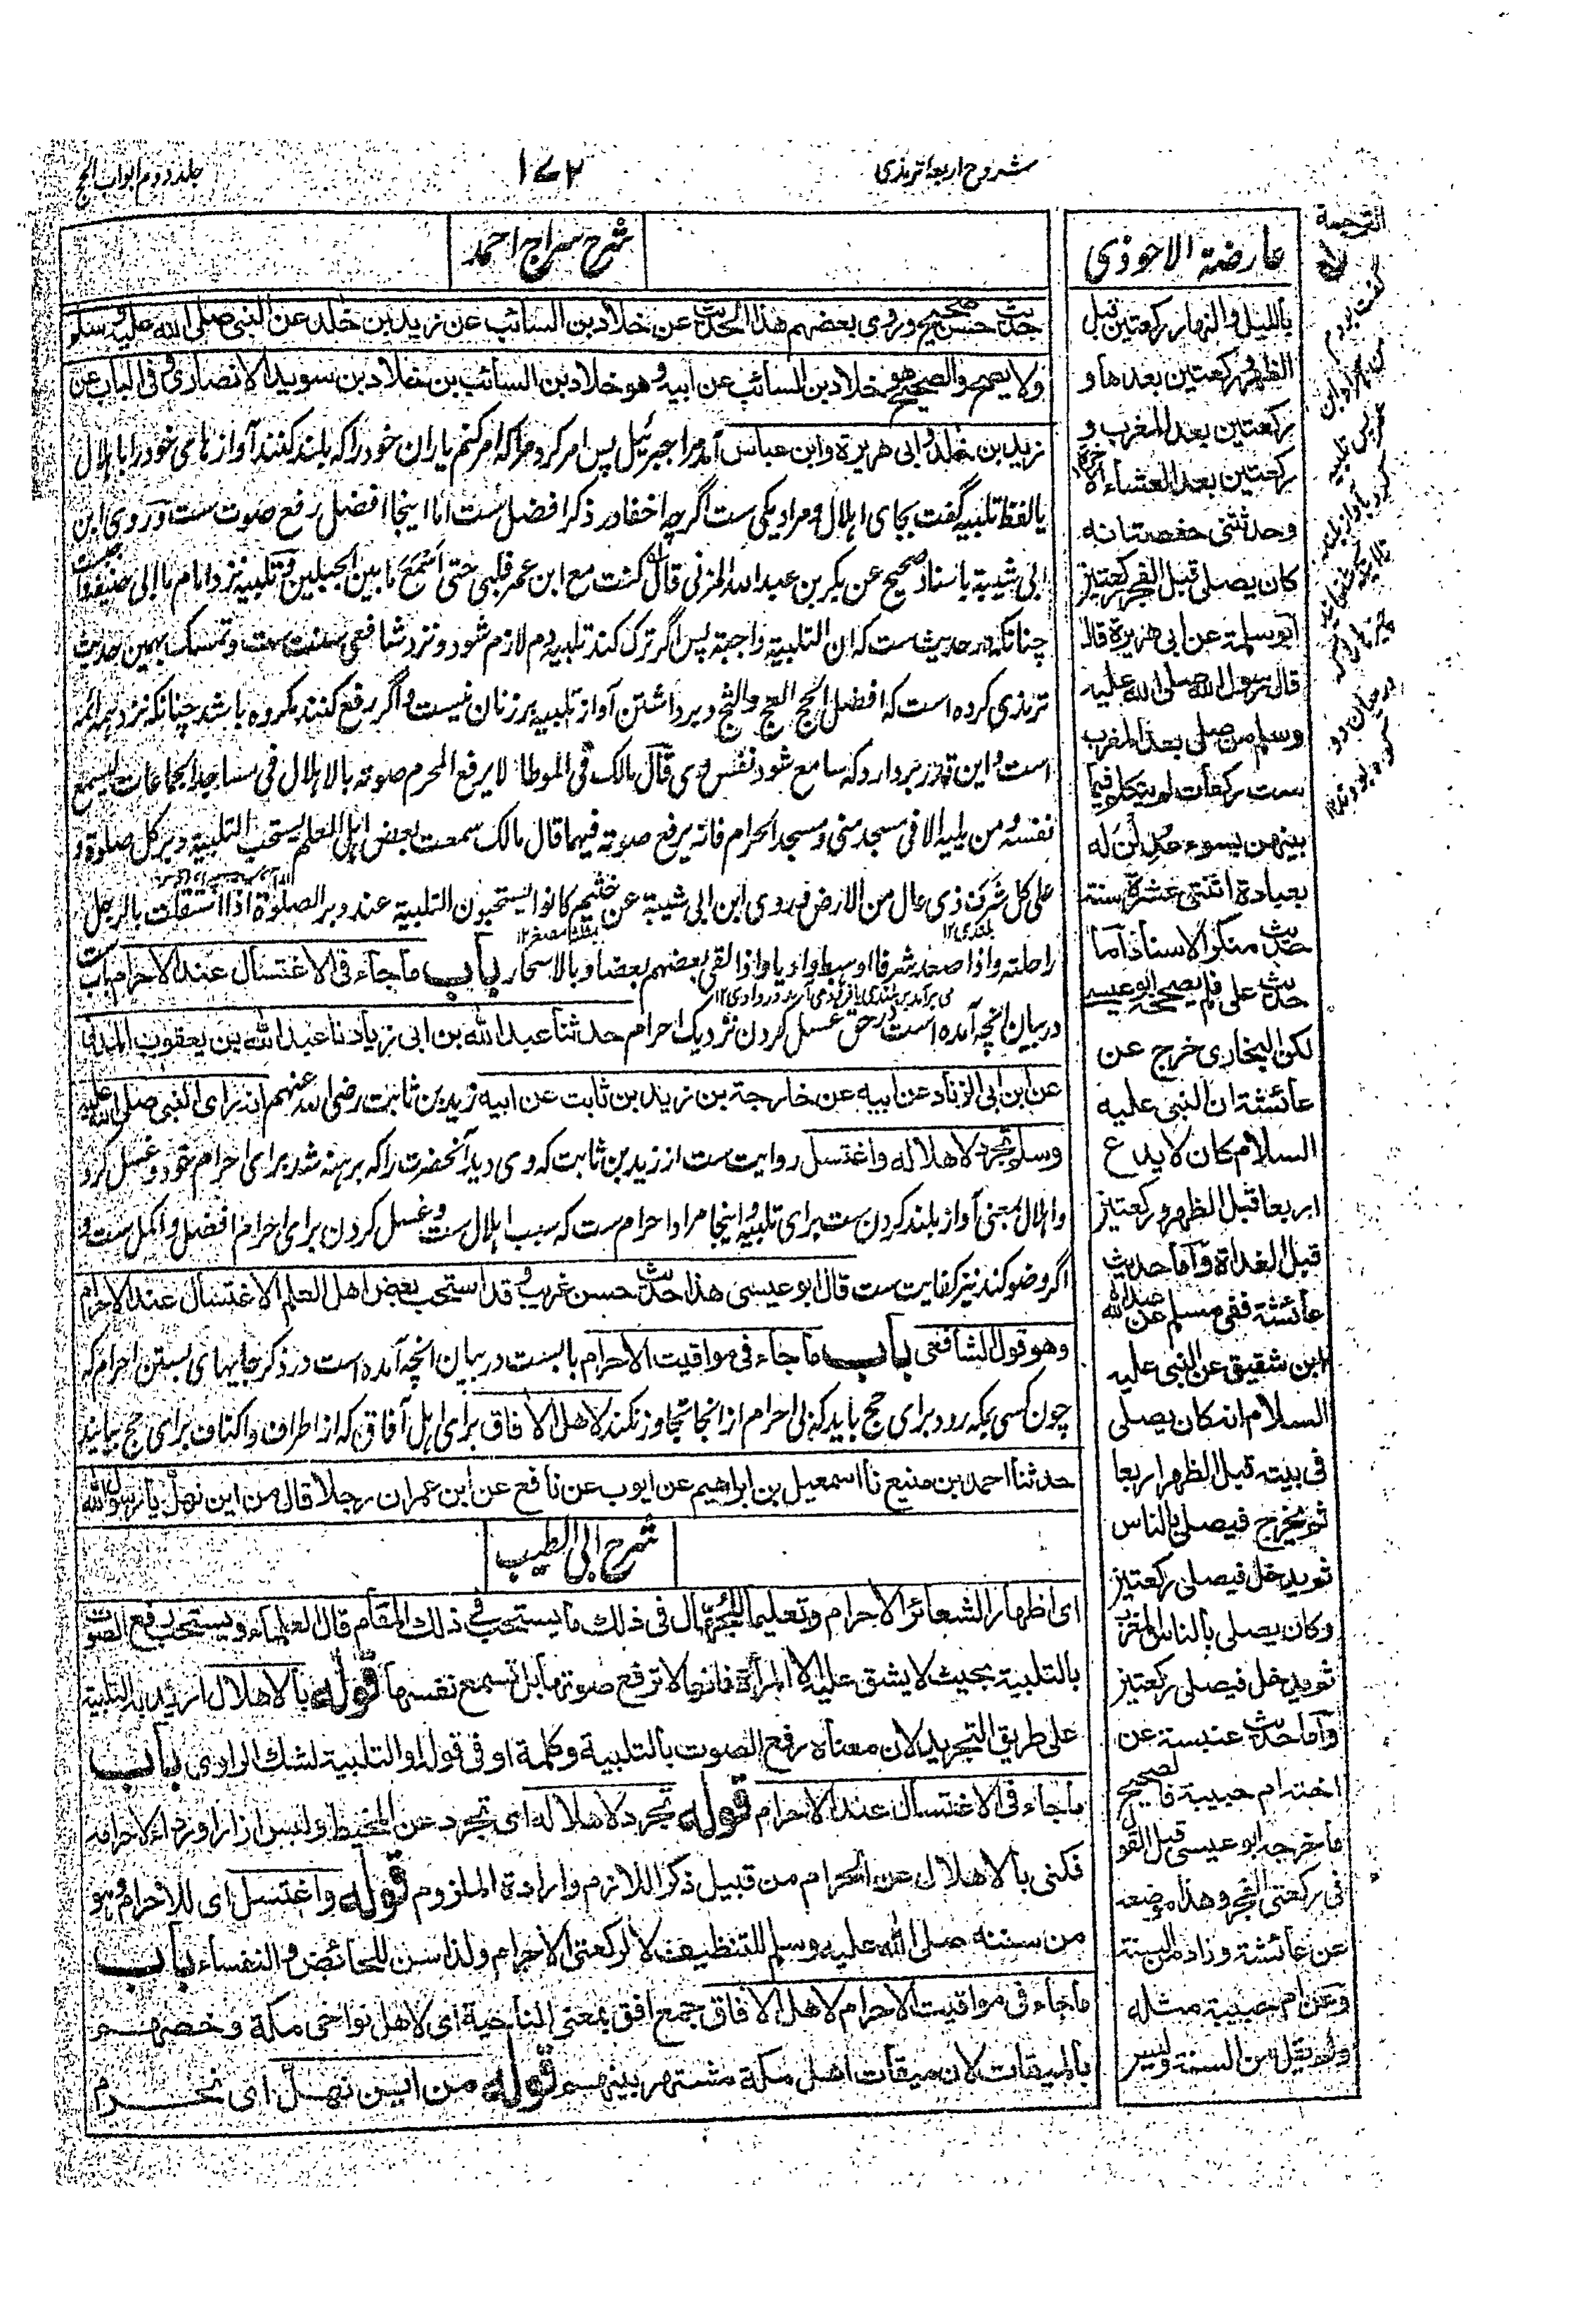 شروح اربعۀ ترمذی
۱۷۲
جلد دوم ابواب الحج
عارضة الاحوذی
بالليل والنهار ركعتين قبل
الظهر وركعتين بعدها و
ركعتين بعد المغرب و
ركعتين بعد العشاء الآخرة
وحدثتنى حفصة انه
كان يصلى قبل الفجر ركعتين
ابو سلمة عن ابى هريرة قال
قال رسول الله صلى الله عليه
وسلم من صلى بعد المغرب
ست ركعات لم يتكلم فيما
بينهن بسوء عدلن له
بعبادة اثنتى عشرة سنة
حديث منكر الاسناد اما
حديث على فلم يصححه ابو عيسى
لكن البخارى خرج عن
عائشة ان النبى عليه
السلام كان لا يدع
اربعا قبل الظهر وركعتين
قبل الغداة واما حديث
عائشة ففى مسلم عن عبد الله
ابن شقيق عن النبى عليه
السلام انه كان يصلى
فى بيته قبل الظهر اربعا
ثم يخرج فيصلى بالناس
ثم يدخل فيصلى ركعتين
وكان يصلى بالناس المغرب
ثم يدخل فيصلى ركعتين
واما حديث عنبسة عن
اخته ام حبيبة فالصحيح
ما خرجه ابو عيسى قبل القول
فى ركعتى الفجر وهذا موضعه
عن عائشة وزاد من السنة
وعن ام حبيبة مثله
ولم يقل من السنة وليس
شرح سراج احمد
حديث حسن صحيح وروى بعضهم هذا الحديث عن خلاد بن السائب عن زيد بن خالد عن النبى صلى الله عليه وسلم
ولا يصح والصحيح هو خلاد بن السائب عن ابيه وهو خلاد بن السائب بن خلاد بن سويد الانصارى وفى الباب عن
زيد بن خالد وابى هريرة وابن عباس آمد مرا جبرئيل پس امر كرد مرا كه امر كنم ياران خود را كه بلند كنند آواز هاى خود را باهلال
يا لفظ تلبيه گفت بجاى اهلال ومراد يكى ست اگرچه اخفا در ذكر افضل ست اما اينجا افضل رفع صوت ست وروى ابن
ابى شيبة باسناد صحيح عن بكر بن عبد الله المزنى قال كنت مع ابن عمر فلبى حتى اسمع ما بين الجبلين وتلبيه نزد امام ما ابى حنيفه واجب ست
چنانكه در حديث ست كه ان التلبية واجبة پس اگر ترك كند تلبيه دم لازم شود ونزد شافعى سنت ست وتمسك بهمين حديث
ترمذى كرده است كه افضل الحج العج والثج وبرداشتن آواز تلبيه بر زنان نيست واگر رفع كنند مكروه باشد چنانكه نزد همه ائمه
است واين قدر بردارد كه سامع شود نفس وى قال مالك فى الموطا لا يرفع المحرم صوته بالاهلال فى مساجد الجماعات ليسمع
نفسه ومن يليه الا فى مسجد منى ومسجد الحرام فانه يرفع صوته فيهما قال مالك سمعت بعض اهل العلم يستحب التلبية دبر كل صلوة و
على كل شرف ذى عال من الارض وروى ابن ابى شيبة عن خثيم كانوا يستحبون التلبية عند دبر الصلوة اذا استقلت بالرجل
راحلته واذا صعد شرفا او هبط واديا واذا لقى بعضهم بعضا وبالاسحار باب ما جاء فى الاغتسال عند الاحرام باب ست
در بيان انچه آمده است در حق غسل كردن نزديك احرام حدثنا عبد الله بن ابى زياد نا عبد الله بن يعقوب المدنى
عن ابن ابى الزناد عن ابيه عن خارجة بن زيد بن ثابت عن ابيه زيد بن ثابت رضى الله عنهم انه راى النبى صلى الله عليه
وسلم تجرد لاهلاله واغتسل روايت ست از زيد بن ثابت كه وى ديد آنحضرت را كه برهنه شد براى احرام خود وغسل كرد
واهلال بمعنى آواز بلند كردن ست براى تلبيه واينجا مراد احرام ست كه سبب اهلال ست وغسل كردن براى احرام افضل واكمل ست و
اگر وضو كند نيز كفايت ست قال ابو عيسى هذا حديث حسن غريب وقد استحب بعض اهل العلم الاغتسال عند الاحرام
وهو قول الشافعى باب ما جاء فى مواقيت الاحرام باب ست در بيان انچه آمده است در ذكر جايهاى بستن احرام كه
چون كسى بمكه رود براى حج بايد كه بى احرام از انجا تجاوز نكند لاهل الآفاق براى اهل آفاق كه از اطراف واكناف براى حج بيايند
حدثنا احمد بن منيع نا اسمعيل بن ابراهيم عن ايوب عن نافع عن ابن عمر ان رجلا قال من اين نهل يا رسول الله
شرح ابى الطيب
اى اظهارا لشعائر الاحرام وتعليما للجهال فى ذلك ما يستحب فى ذلك المقام قال العلماء ويستحب رفع الصوت
بالتلبية بحيث لا يشق عليه الا المرأة فانها لا ترفع صوتها بل تسمع نفسها قوله بالاهلال اريد به التلبية
على طريق التجريد لان معناه رفع الصوت بالتلبية وكلمة او فى قوله او التلبية لشك الراوى باب
ما جاء فى الاغتسال عند الاحرام قوله تجرد لاهلاله اى تجرد عن المخيط ولبس ازارا ورداء لاحرامه
فكنى بالاهلال عن الاحرام من قبيل ذكر اللازم وارادة الملزوم قوله واغتسل اى للاحرام وهو
من سننه صلى الله عليه وسلم للتنظيف لا لركعتى الاحرام ولذا سن للحائض والنفساء باب
ما جاء فى مواقيت الاحرام لاهل الآفاق جمع افق بمعنى الناحية اى لاهل نواحى مكة وخصهم
بالميقات لان ميقات اهل مكة مشتهر بينهم قوله من اين نهل اى نحرم
الترجمة